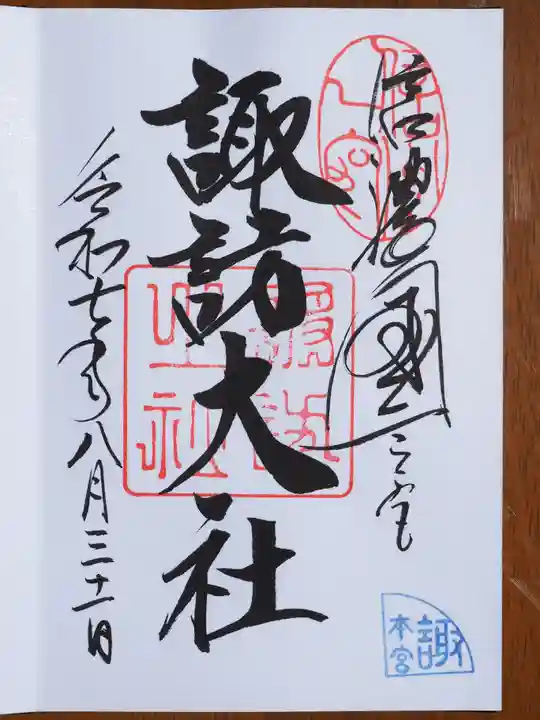 信濃國一之宮
諏訪大社
令和七年八月三十一日
諏
本宮